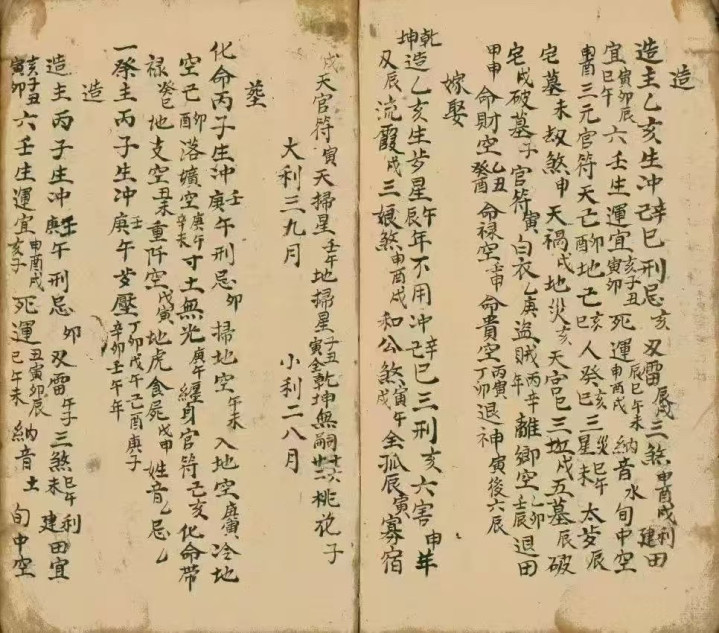 造
造主乙亥生冲辛巳己巳刑忌亥双雷辰戌三煞申酉戌利建田
宜寅卯辰巳午六壬生運宜亥子丑寅卯死運辰巳午未申酉戌納音水旬中空
申酉三元官符天亡酉卯地亡亥巳人癸巳亥三災巳午星未太岁辰
宅墓未劫煞申天禍戌地災亥天官巳三坵戌五墓辰破
宅戌破墓子官符寅白衣乙庚盜賊年丙辛離鄉空乙卯壬辰退田
甲申命財空乙丑癸酉命禄空壬申命貴空丙寅丁卯退神寅後六辰
嫁娶
乾坤造乙亥生岁星午辰年不用冲辛巳己巳三刑亥六害申年
双辰流霞戌三娘煞申酉戌和公煞寅午全孤辰寅寡宿
戌天官符寅天掃星壬午地掃星子丑寅全乾坤無嗣十六廿二桃花子
大利三九月 小利二八月
塟
化命丙子生冲壬午庚午刑忌卯掃地空午未入地空庚寅冷地
空己酉卯落壙空庚午辛未寸土無光庚午纏身官符己亥化命帶
禄癸巳地支空丑未重阡空戊寅地虎食屍戊申姓音乙忌乙
一祭主丙子生冲壬午庚午岁壓丁卯戊午己酉庚子辛卯壬午年
造
造主丙子生冲壬午庚午刑忌卯双雷午子三煞巳午未利建田宜
亥子丑寅卯六壬生運宜申酉戌亥子死運丑寅卯辰巳午未納音土旬中空